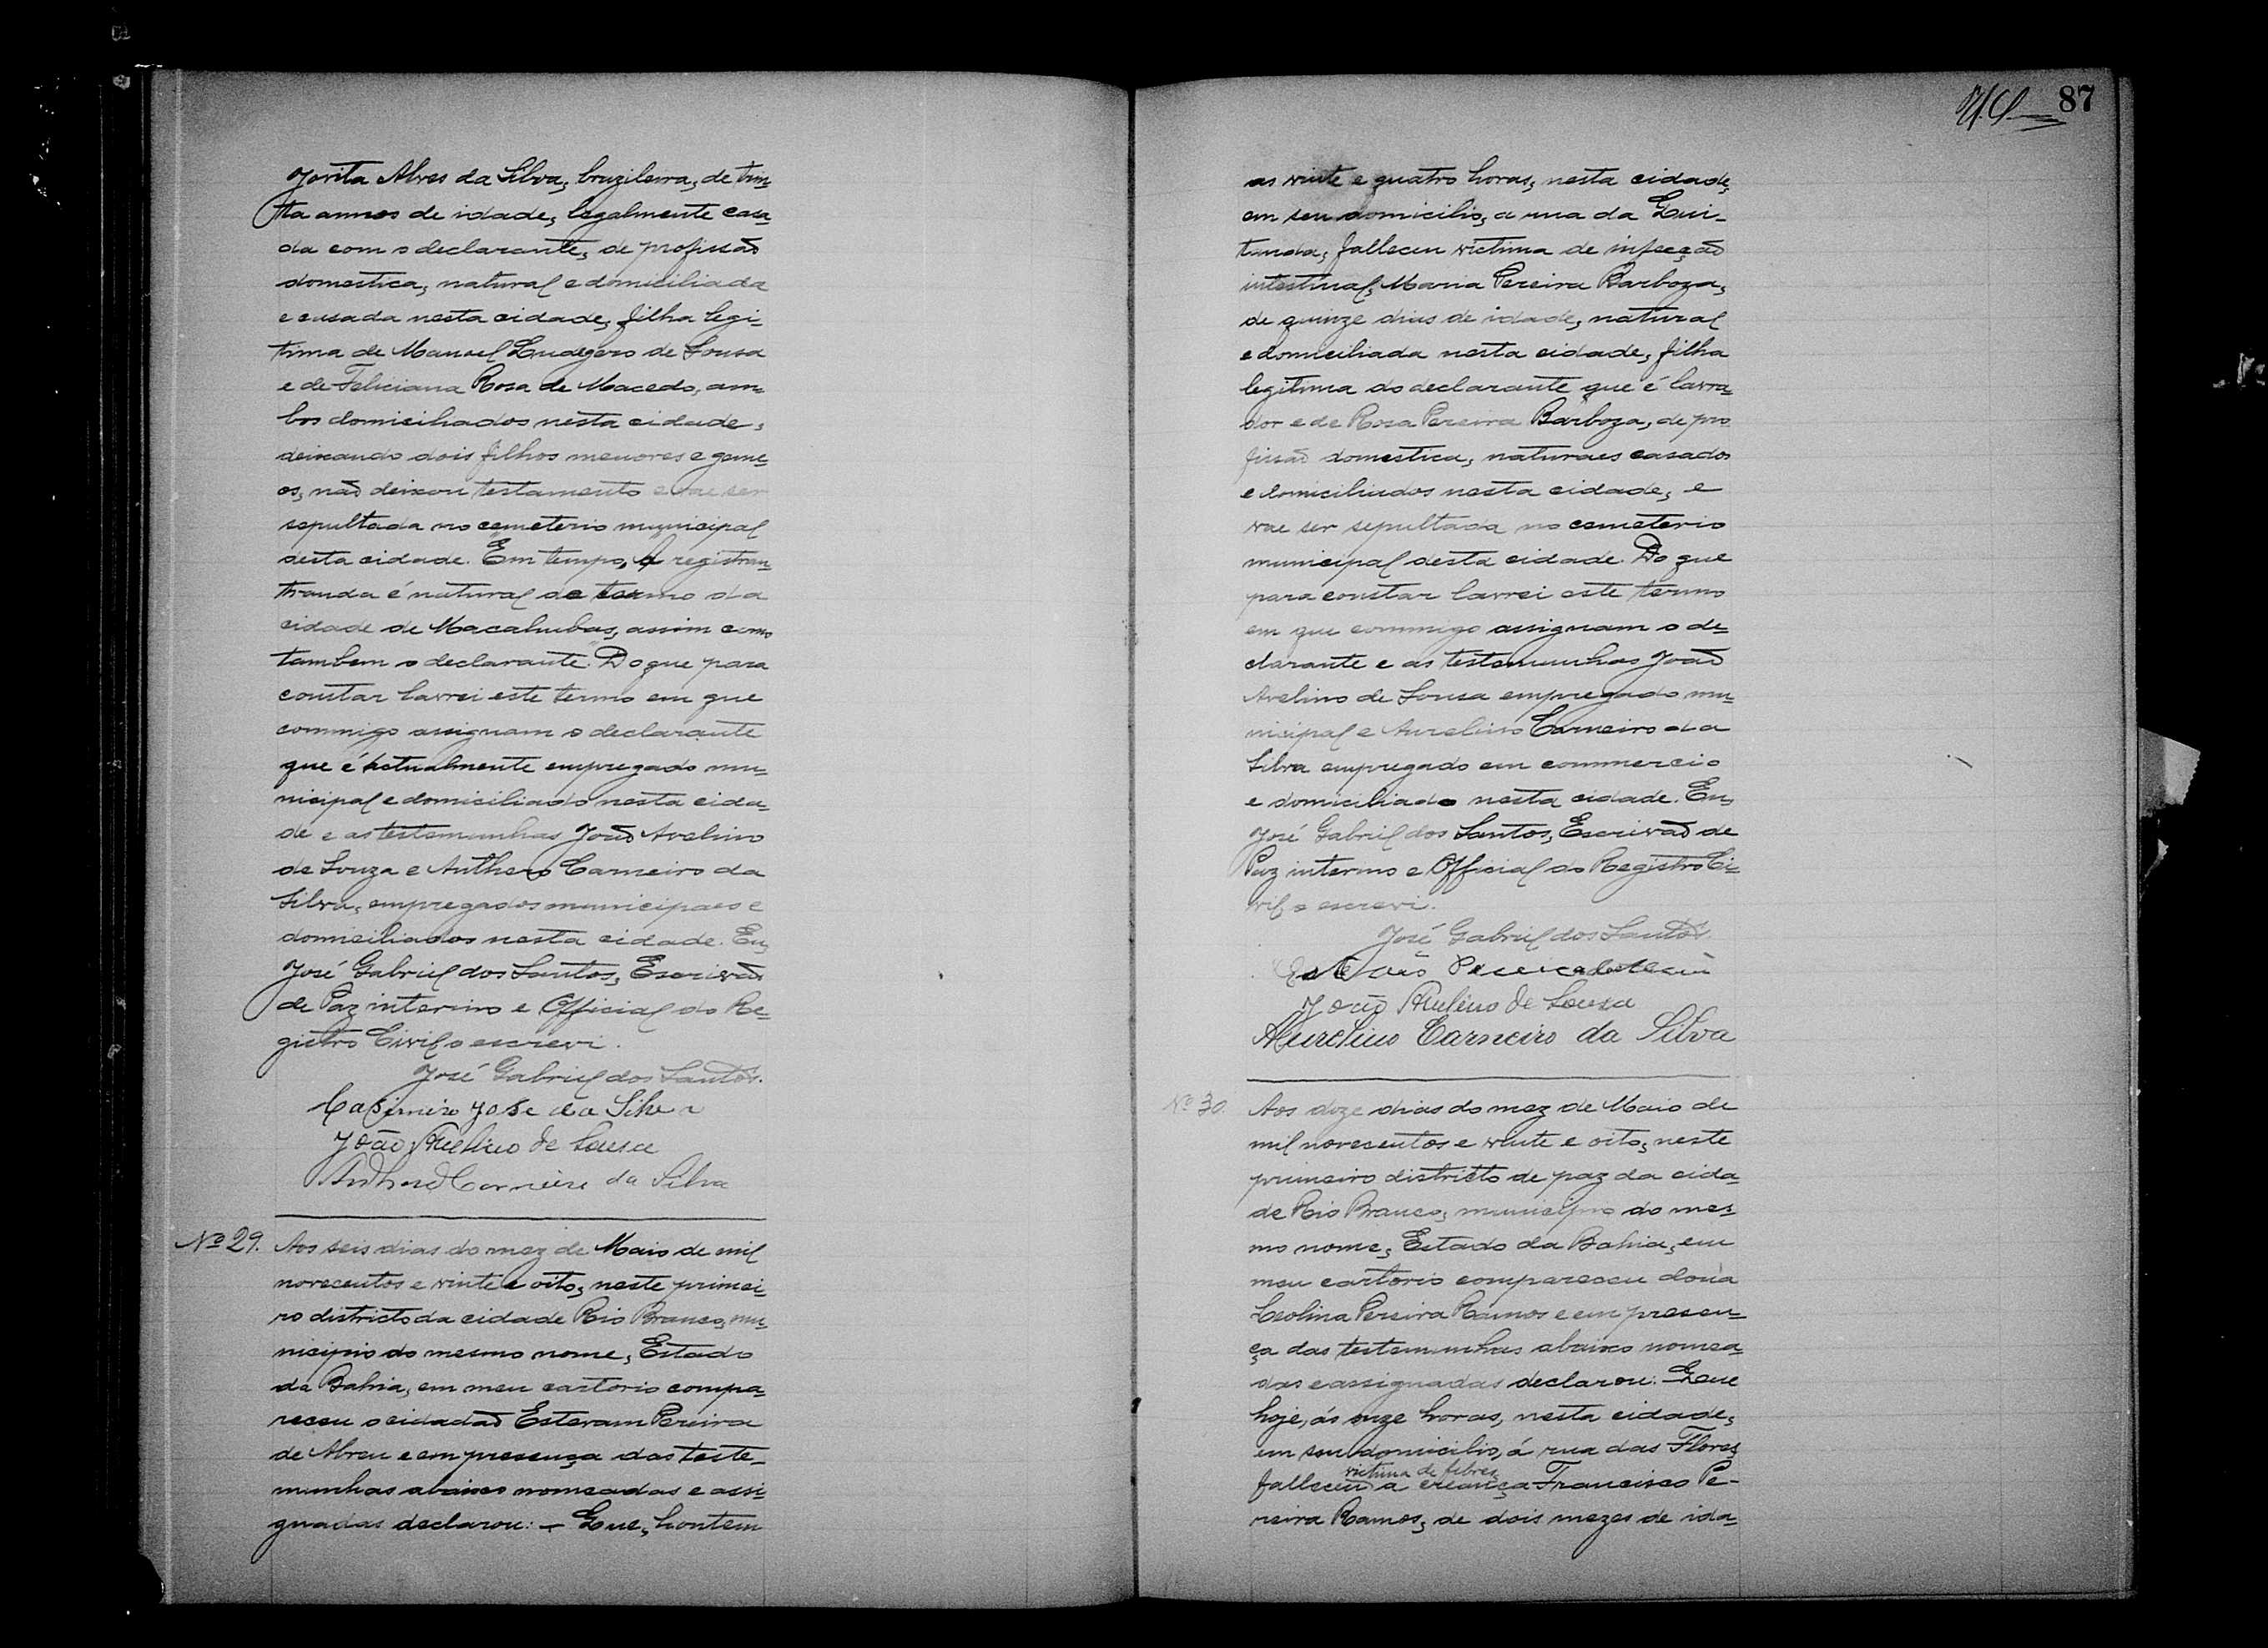 Jovita Alves da Silva, brazileira, de trin-
ta annos de idade, legalmente casa
da com o declarante, de profissão
domestica, natural e domiciliada
e casada nesta cidade, filha legi-
tima de Manuel Ludgero de Sousa
e de Feliciana Rosa de Macedo, am-
bos domiciliados nesta cidade,
deixando dois filhos menores e geme-
os, não deixou testamento e vae ser
sepultada no cemeterio municipal
desta cidade. Em tempo, A registran-
tranda é natural do termo da
cidade de Macahubas, assim como
tambem o declarante. Do que para
constar lavrei este termo em que
commigo assignam o declarante
que é actualmente empregado mu-
nicipal e domiciliado nesta cida-
de e as testemunhas João Avelino
de Souza e Anthero Carneiro da
Silva, empregados municipaes e
domiciliados nesta cidade. Eu,
José Gabriel dos Santos, Escrivão
de Paz interino e Official do Re-
gistro Civil o escrevi.
José Gabriel dos Santos.
Casimiro José da Silva
João Avelino de Sousa
Anthero Carneiro da Silva
Nº 29. Aos seis dias do mez de Maio de mil
novecentos e vinte e oito, neste primei-
ro districto da cidade Rio Branco, mu-
nicipio do mesmo nome, Estado
da Bahia, em meu cartorio compa-
receu o cidadão Estevam Pereira
de Abreu e em presença das teste-
munhas abaixo nomeadas e assi-
gnadas declarou: - Que, hontem
87
as vinte e quatro horas, nesta cidade,
em seu domicilio, a rua da Qui-
tanda, falleceu victima de infecção
intestinal, Maria Pereira Barboza,
de quinze dias de idade, natural
e domiciliada nesta cidade, filha
legitima do declarante que é lavra-
dor e de Rosa Pereira Barboza, de pro
fissão domestica, naturaes casados
e domiciliados nesta cidade, e
vae ser sepultada no cemeterio
municipal desta cidade. Do que
para constar lavrei este termo
em que commigo assignam o de-
clarante e as testemunhas João
Avelino de Sousa empregado mu-
nicipal e Aurelino Carneiro da
Silva empregado em commercio
e domiciliado nesta cidade. Eu,
José Gabriel dos Santos, Escrivão de
Paz interino e Official do Registro Ci-
vil o escrevi.
José Gabriel dos Santos.
João Avelino de Sousa
Aurelino Carneiro da Silva
Nº 30. Aos doze dias do mez de Maio de
mil novecentos e vinte e oito, neste
primeiro districto de paz da cida-
de Rio Branco, municipio do mes-
mo nome, Estado da Bahia, em
meu cartorio compareceu dona
Leolina Pereira Ramos e em presen-
ça das testemunhas abaixo nomea-
das e assignadas declarou: Que
hoje, ás onze horas, nesta cidade,
em seu domicilio, á rua das Flores,
victima de febres,
falleceu a creança Francisco Pe-
reira Ramos, de dois mezes de ida-